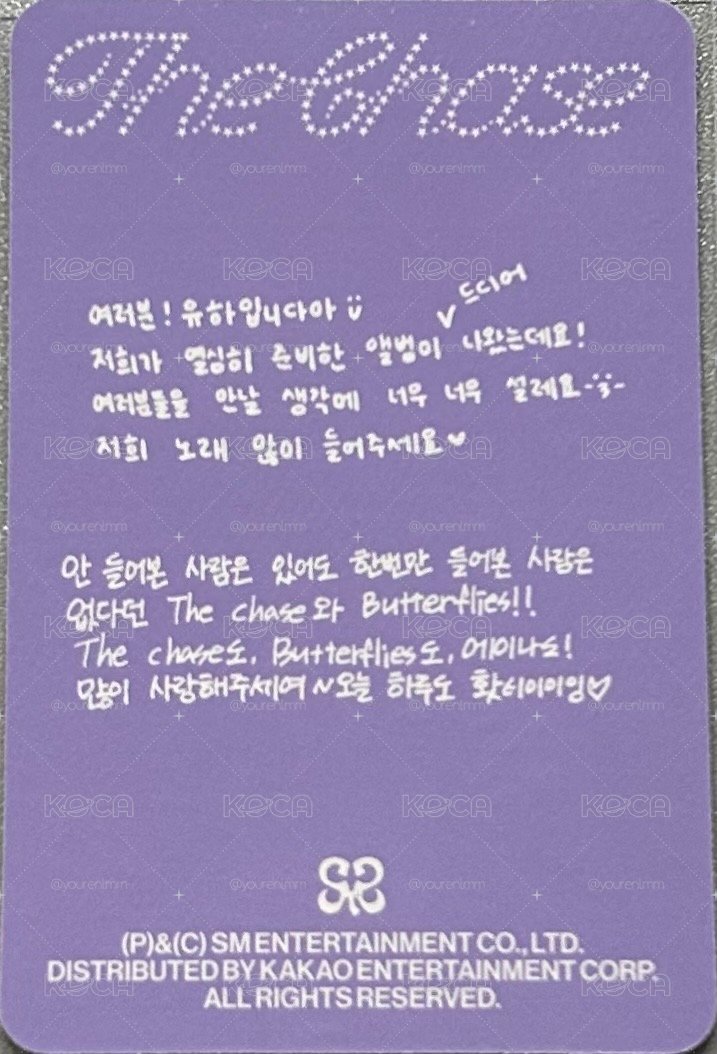 The Chase
여러분! 유하입니다아
드디어
저희가 열심히 준비한 앨범이 나왔는데요!
여러분들을 만날 생각에 너무 너무 설레요
저희 노래 많이 들어주세요♥
안 들어본 사람은 있어도 한번만 들어본 사람은
없다던 The chase 와 Butterflies!!
The chase도, Butterflies도, 에이나도!
많이 사랑해주세여 ~오늘 하루도 홧쉬이이잉♡
(P)&(C) SM ENTERTAINMENT CO., LTD.
DISTRIBUTED BY KAKAO ENTERTAINMENT CORP.
ALL RIGHTS RESERVED.
KOCA
@yourenlmm